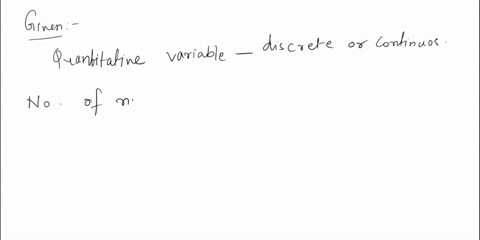 Given:-
Quantitative variable — discrete or continuos.
No. of n